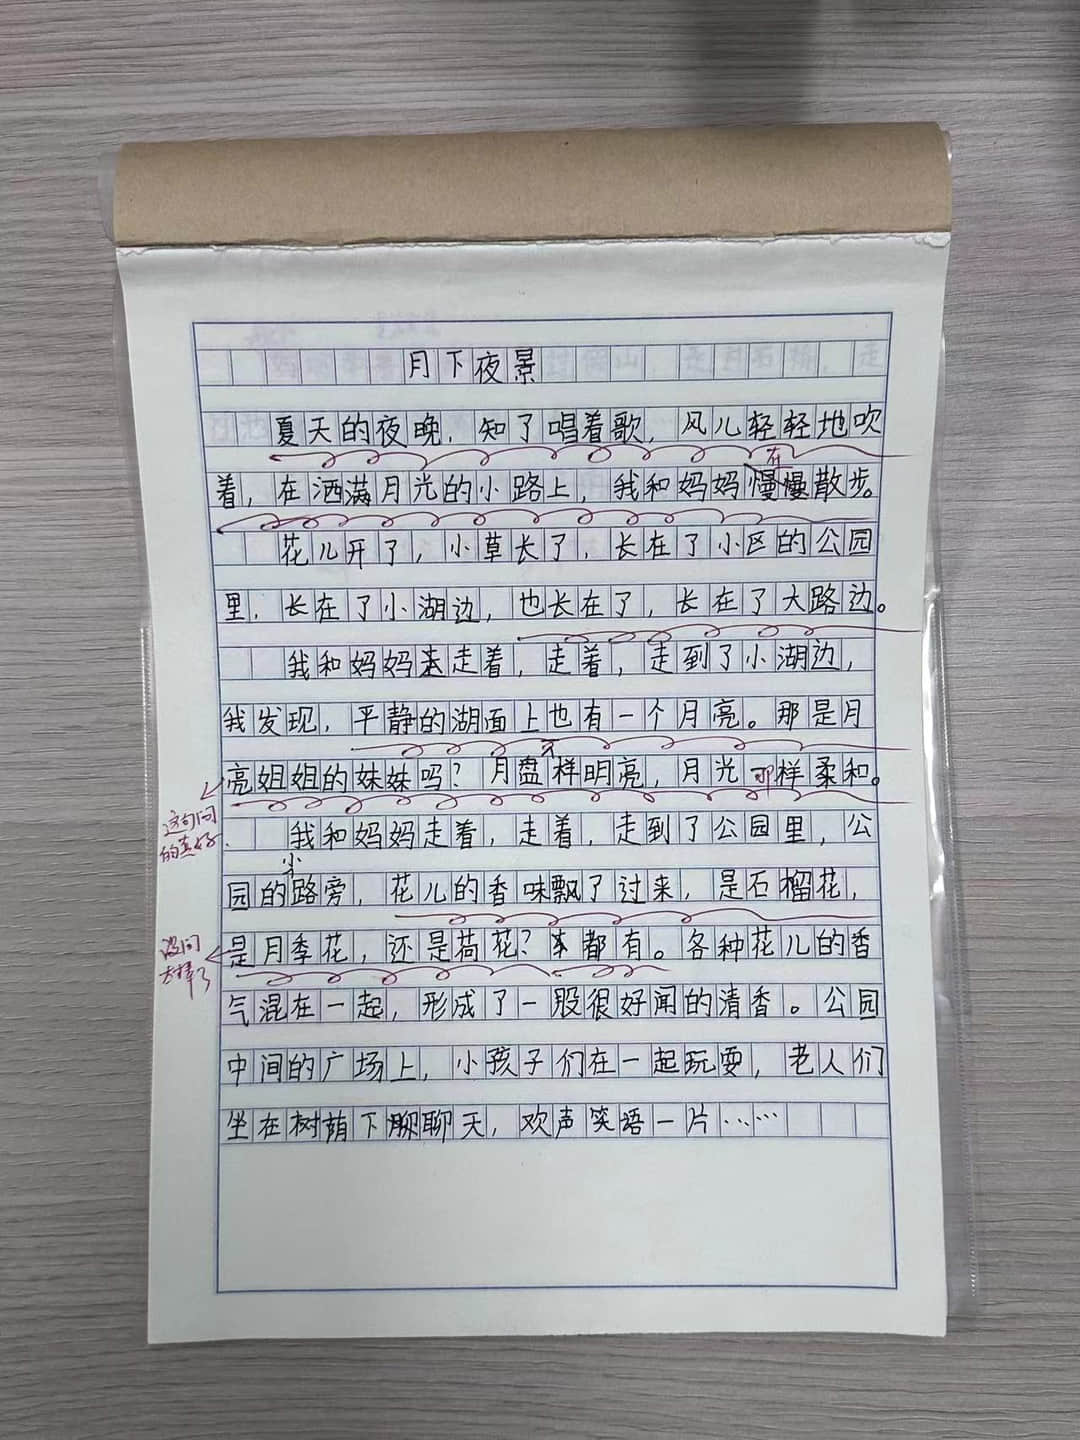 月下夜景
夏天的夜晚，知了唱着歌，风儿轻轻地吹
在
着，在洒满月光的小路上，我和妈妈慢慢散步。
花儿开了，小草长了，长在了小区的公园
里，长在了小湖边，也长在了，长在了大路边。
我和妈妈走着，走着，走到了小湖边，
我发现，平静的湖面上也有一个月亮。那是月
亮姐姐的妹妹吗？月盘样明亮，月光那样柔和。
这句问
的真好
我和妈妈走着，走着，走到了公园里，公
小
园的路旁，花儿的香味飘了过来，是石榴花，
是月季花，还是荷花？都有。各种花儿的香
设问
太棒了
气混在一起，形成了一股很好闻的清香。公园
中间的广场上，小孩子们在一起玩耍，老人们
坐在树荫下聊聊天，欢声笑语一片……